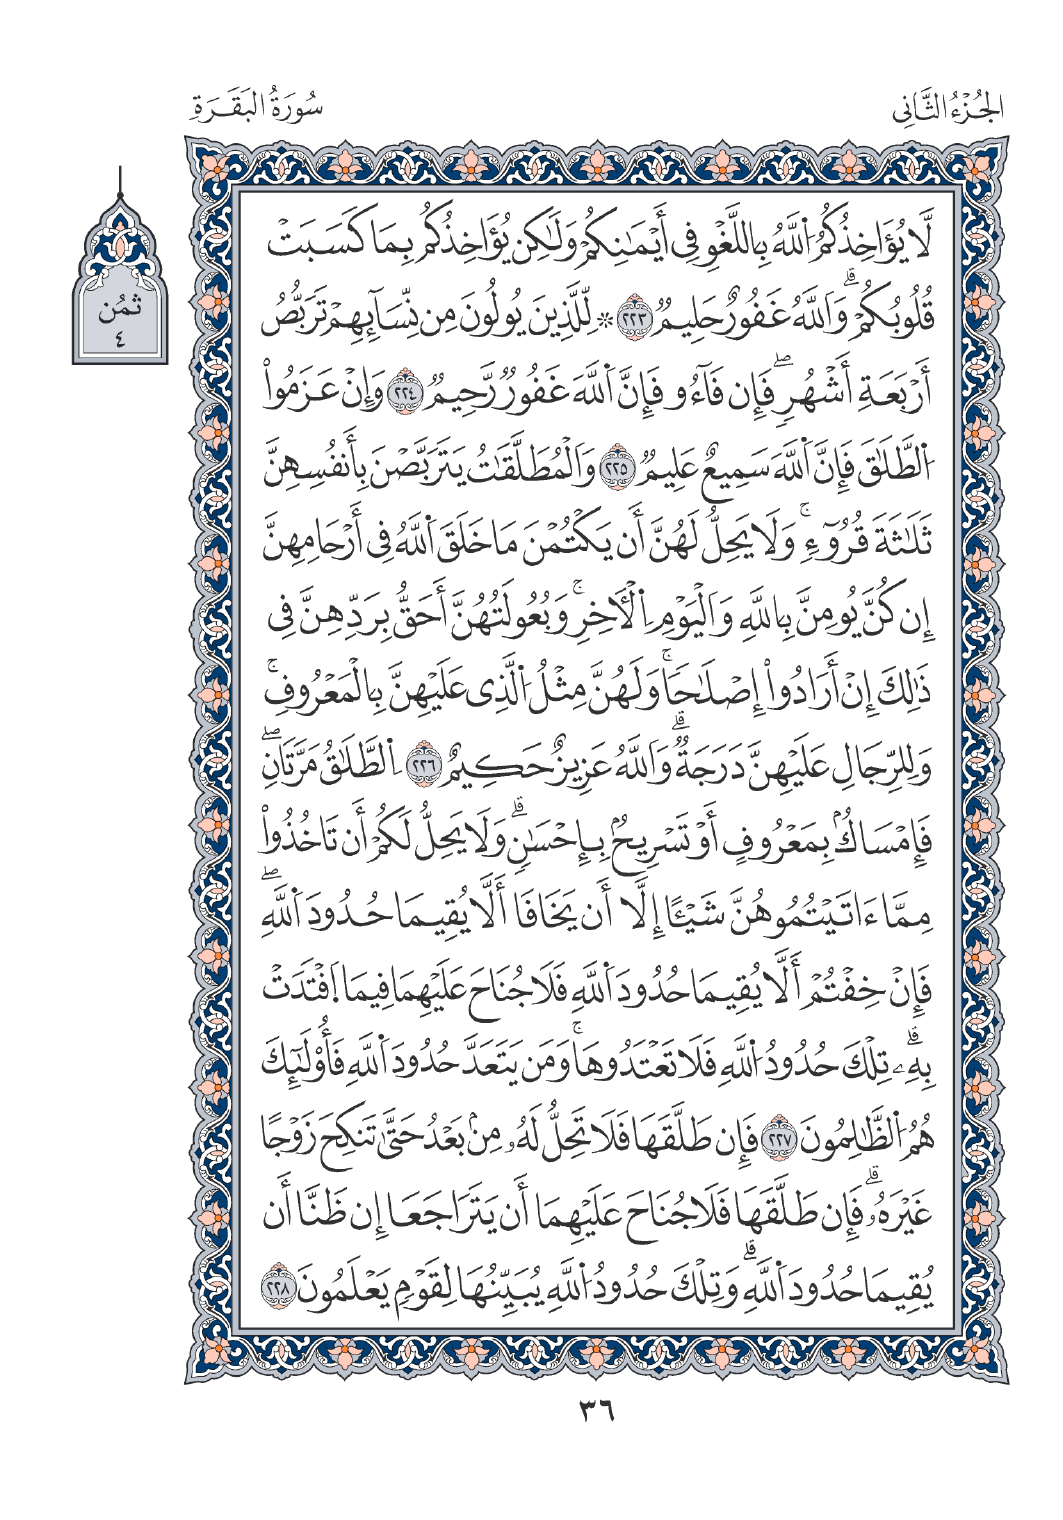 الجُزْءُ الثَّانِى
سُورَةُ البَقَرَةِ
ثمُن
٤
لَّا يُؤَاخِذُكُمُ اُ۬للَّهُ بِاللَّغْوِ فِى أَيْمَٰنِكُمْ وَلَٰكِن يُؤَاخِذُكُم بِمَا كَسَبَتْ
قُلُوبُكُمْۗ وَاَللَّهُ غَفُورٌ حَلِيمٌ ٢٢٣ ۞ لِّلَّذِينَ يُولُونَ مِن نِّسَآئِهِمْ تَرَبُّصُ
أَرْبَعَةِ أَشْهُرٍۖ فَإِن فَآءُو فَإِنَّ اَ۬للَّهَ غَفُورٌ رَّحِيمٌ ٢٢٤ وَإِنْ عَزَمُواْ
اُ۬لطَّلَٰقَ فَإِنَّ اَ۬للَّهَ سَمِيعٌ عَلِيمٌ ٢٢٥ وَاَلْمُطَلَّقَٰتُ يَتَرَبَّصْنَ بِأَنفُسِهِنَّ
ثَلَٰثَةَ قُرُوٓءٍۚ وَلَا يَحِلُّ لَهُنَّ أَن يَكْتُمْنَ مَا خَلَقَ اَ۬للَّهُ فِى أَرْحَامِهِنَّ
إِن كُنَّ يُومِنَّ بِاللَّهِ وَاَلْيَوْمِ اِ۬لْأٓخِرِۚ وَبُعُولَتُهُنَّ أَحَقُّ بِرَدِّهِنَّ فِى
ذَٰلِكَ إِنْ أَرَادُواْ إِصْلَٰحًاۚ وَلَهُنَّ مِثْلُ اُ۬لَّذِى عَلَيْهِنَّ بِالْمَعْرُوفِۚ
وَلِلرِّجَالِ عَلَيْهِنَّ دَرَجَةٌۗ وَاَللَّهُ عَزِيزٌ حَكِيمٌ ٢٢٦ اِ۬لطَّلَٰقُ مَرَّتَانِۖ
فَإِمْسَاكٌۢ بِمَعْرُوفٍ أَوْ تَسْرِيحٌۢ بِإِحْسَٰنٍۗ وَلَا يَحِلُّ لَكُمْ أَن تَاخُذُواْ
مِمَّا ءَاتَيْتُمُوهُنَّ شَيْـًٔا إِلَّا أَن يَخَافَا أَلَّا يُقِيمَا حُدُودَ اَ۬للَّهِۖ
فَإِنْ خِفْتُمْ أَلَّا يُقِيمَا حُدُودَ اَ۬للَّهِ فَلَا جُنَاحَ عَلَيْهِمَا فِيمَا اَ۪فْتَدَتْ
بِهِۦۗ تِلْكَ حُدُودُ اُ۬للَّهِ فَلَا تَعْتَدُوهَاۚ وَمَن يَتَعَدَّ حُدُودَ اَ۬للَّهِ فَأُوْلَٰٓئِكَ
هُمُ اُ۬لظَّٰلِمُونَ ٢٢٧ فَإِن طَلَّقَهَا فَلَا تَحِلُّ لَهُۥ مِنۢ بَعْدُ حَتَّىٰ تَنكِحَ زَوْجًا
غَيْرَهُۥۗ فَإِن طَلَّقَهَا فَلَا جُنَاحَ عَلَيْهِمَا أَن يَتَرَاجَعَا إِن ظَنَّا أَن
يُقِيمَا حُدُودَ اَ۬للَّهِۗ وَتِلْكَ حُدُودُ اُ۬للَّهِ يُبَيِّنُهَا لِقَوْمٍ يَعْلَمُونَ ٢٢٨
٣٦